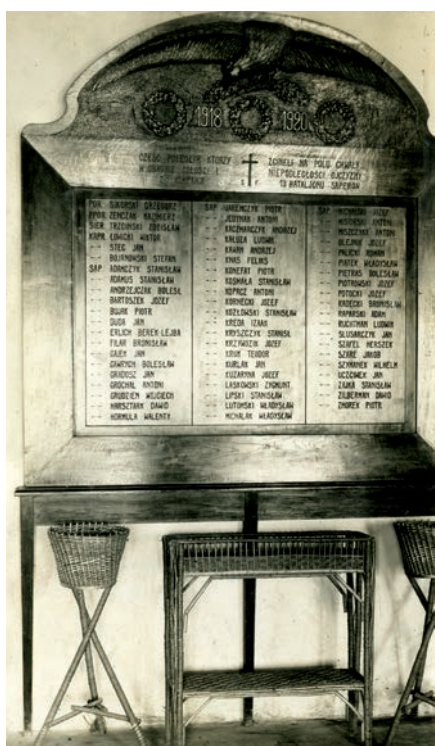 1918 1920
CZEŚĆ POLEGŁYM KTÓRZY
ZGINĘLI NA POLU CHWAŁY
W OBRONIE CAŁOŚCI I
NIEPODLEGŁOŚCI OJCZYZNY
13 BATALJONU SAPERÓW
POR. SIKORSKI GRZEGORZ
PPOR. ZEMCZAK KAZIMIERZ
SIER. TRZCIŃSKI ZDZISŁAW
KAPR. ŁOWICKI WIKTOR
STEC JAN
BOJANOWSKI STEFAN
SAP. ADAMCZYK STANISŁAW
ADAMUS STANISŁAW
ANDRZEJCZAK BOLESŁ.
BARTOSZEK JÓZEF
BUJAK PIOTR
DUDA JAN
ERLICH BEREK-LEJBA
FILAR BRONISŁAW
GAJEK JAN
GAWRYCH BOLESŁAW
GRADOSZ JAN
GROCHAL ANTONI
GRUDZIEŃ WOJCIECH
HARSZTARK DAWID
HORMUŁA WALENTY
SAP. JAREMCZYK PIOTR
JEDYNAK ANTONI
KACZMARCZYK ANDRZEJ
KAŁUŻA LUDWIK
KAWKA ANDRZEJ
KNAŚ FELIKS
KONEFAŁ PIOTR
KOSMALA STANISŁAW
KOPACZ ANTONI
KORNECKI JÓZEF
KOZŁOWSKI STANISŁAW
KREDA IZAAK
KRYSZCZYK STANISŁ.
KRZYWDZIK JÓZEF
KRUK TEODOR
KURLAK JAN
KUZARYNA JÓZEF
LASKOWSKI ZYGMUNT
LIPSKI STANISŁAW
LUTOMSKI WŁADYSŁAW
MICHALAK WŁADYSŁAW
SAP. JÓZEF
ANTONI
NISZCZAK ANTONI
OLEJNIK JÓZEF
PALICKI ROMAN
PIĄTEK WŁADYSŁAW
PIETRAS BOLESŁAW
PIOTROWSKI JÓZEF
POTOCKI JÓZEF
RADECKI BRONISŁAW
RAPARSKI ADAM
RUCHTMAN LUDWIK
ŚLUSARCZYK JAN
SZAFEL HERSZEK
SZARE JAKÓB
SZYMANEK WILHELM
UCZCIWEK JAN
ZAJKA STANISŁAW
ZILBERMAN DAWID
ZNOREK PIOTR